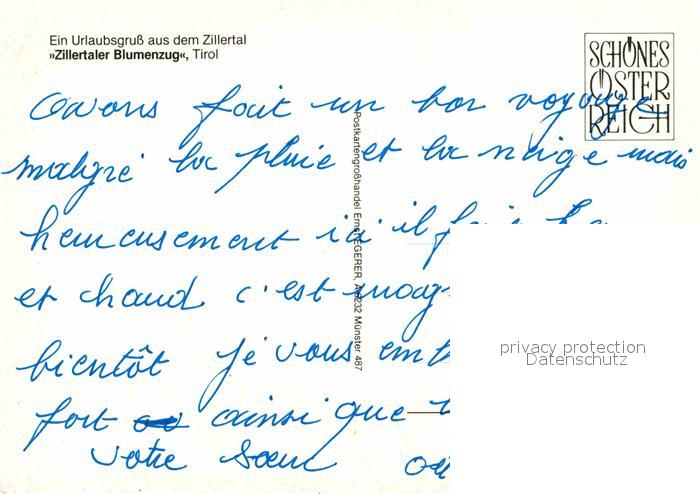 Ein Urlaubsgruß aus dem Zillertal
»Zillertaler Blumenzug«, Tirol
SCHÖNES
ÖSTER
REICH
avons fait un bon voyage
malgré la pluie et la neige mais
heureusement ici il fait
et chaud c'est
bientôt je vous
fort ainsi que
votre soeur
Postkartengroßhandel Ernst EGERER, A-6232 Münster 487
privacy protection
Datenschutz